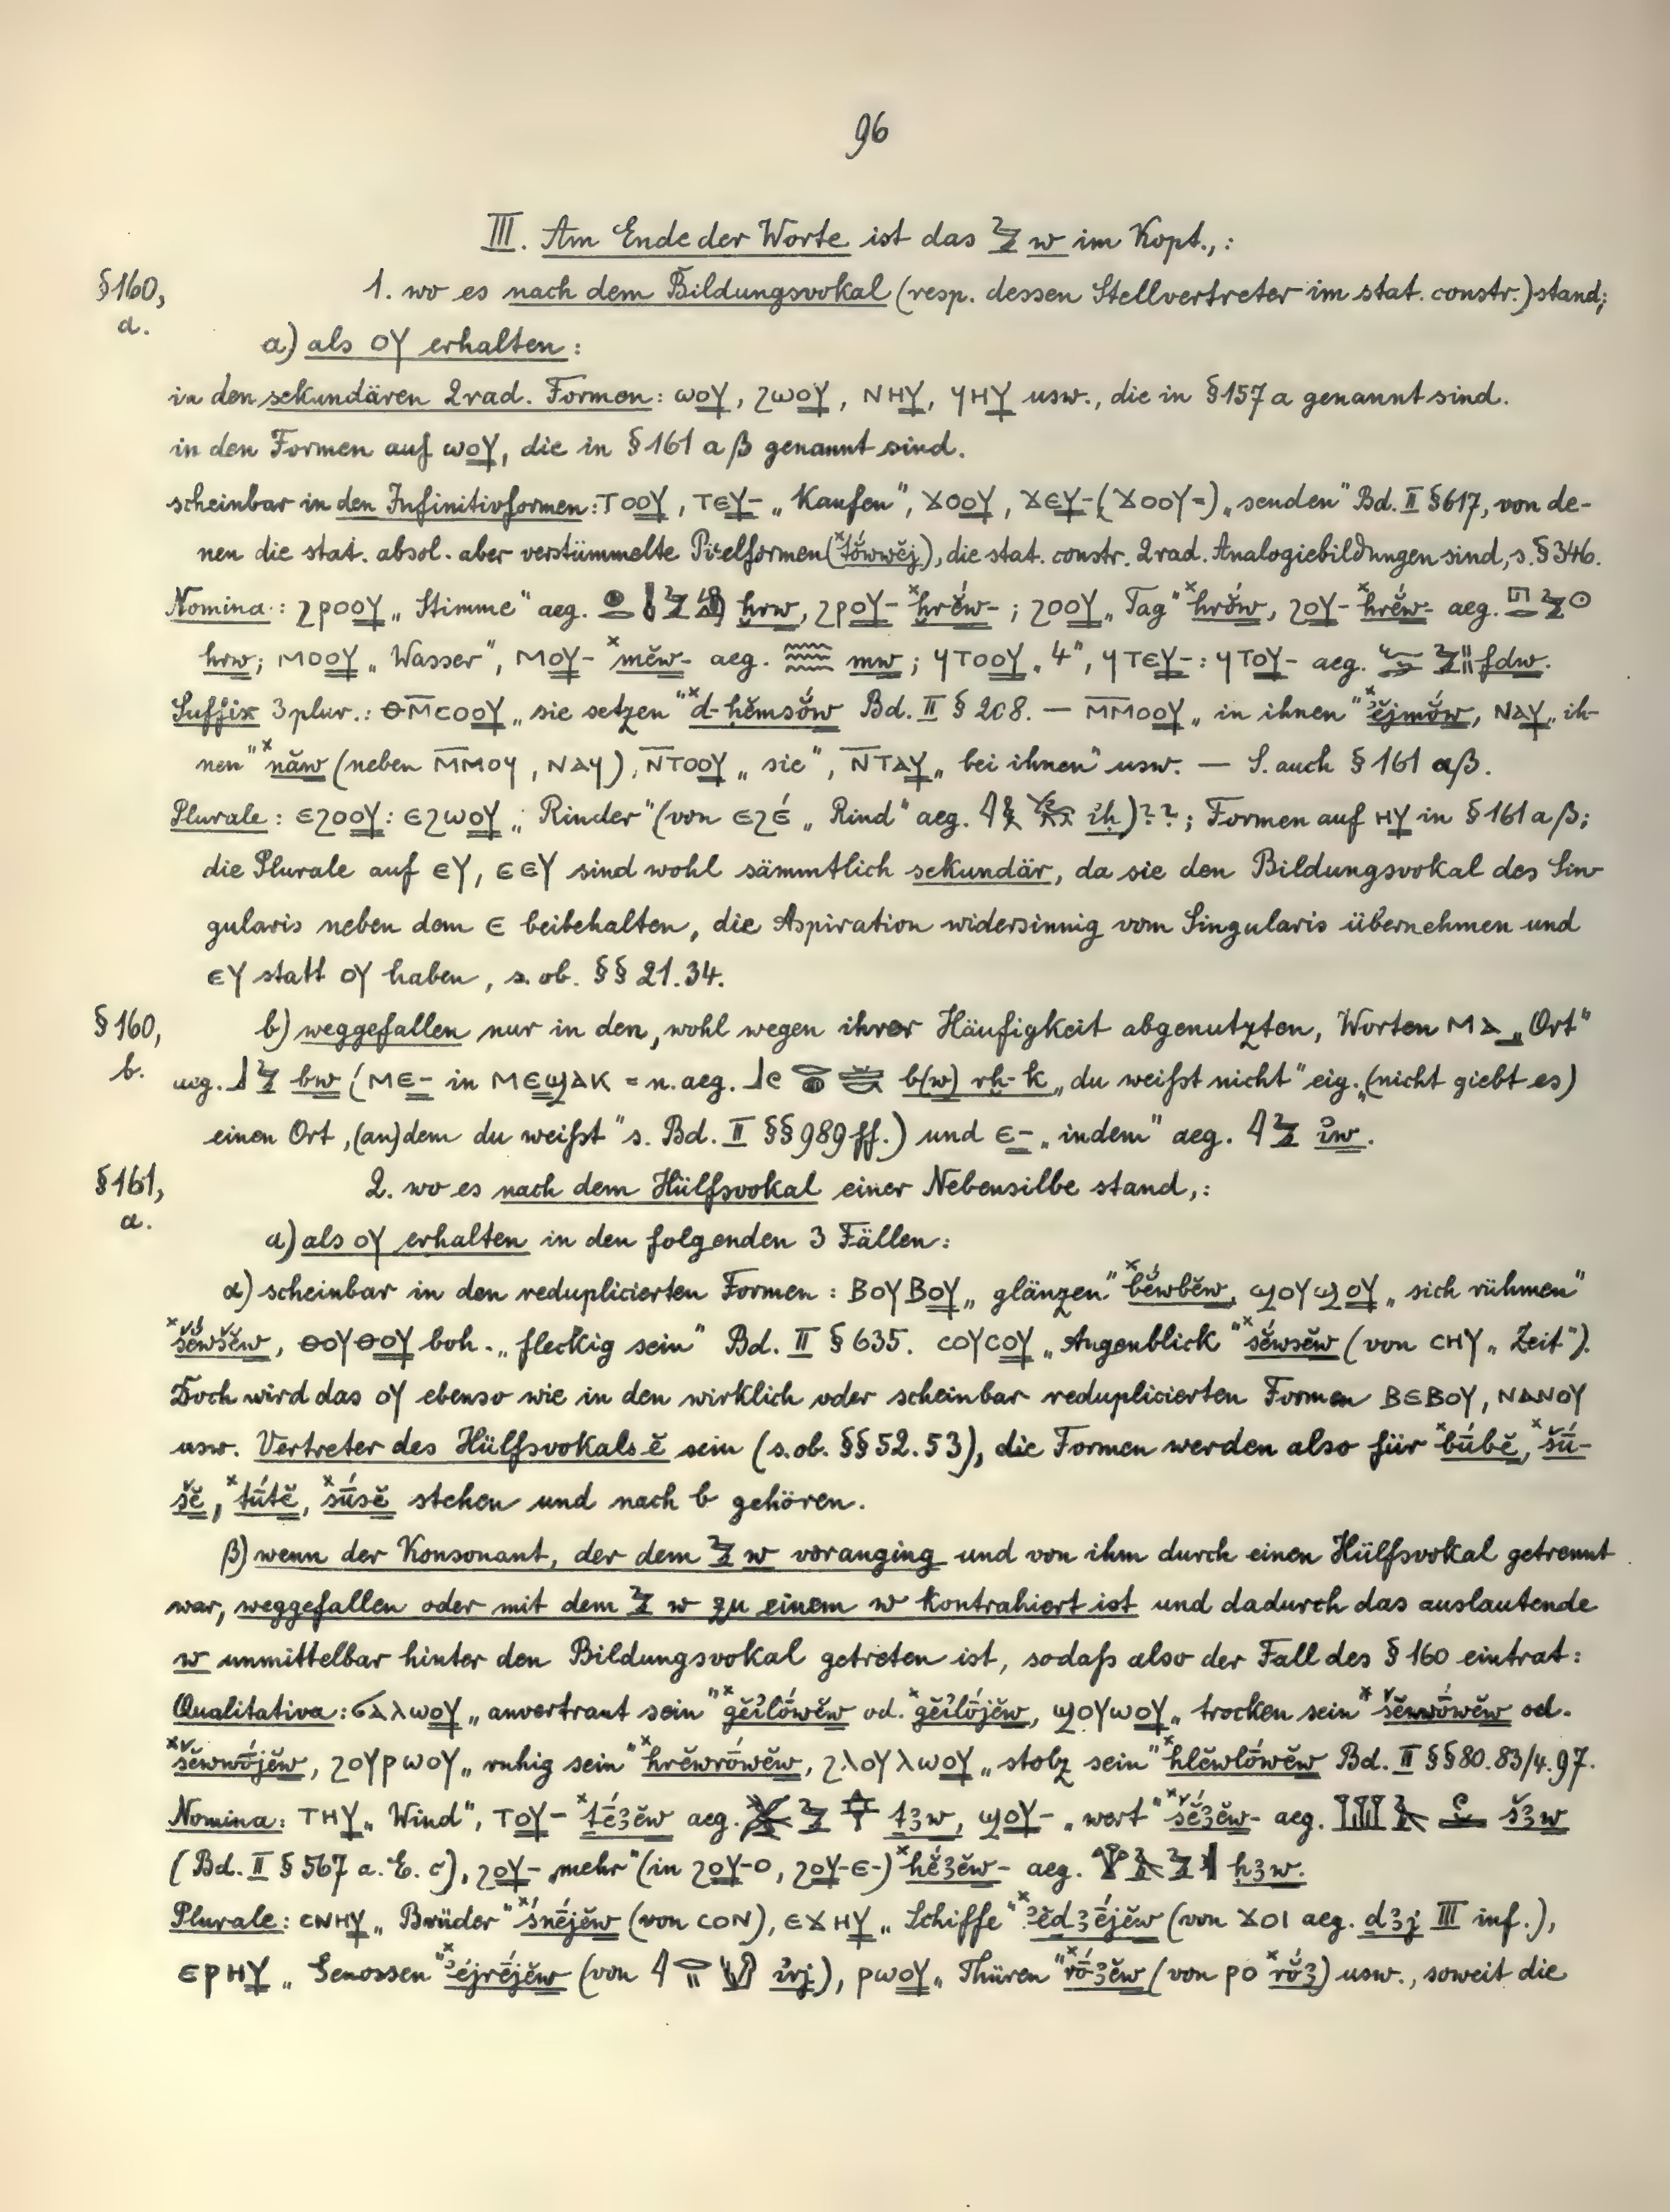 96
III. Am Ende der Worte ist das 𓅱 w im Kopt.,:
§160, a. 1. wo es nach dem Bildungsvokal (resp. dessen Stellvertreter im stat. constr.) stand;
a) als ⲟⲩ erhalten:
in den sekundären 2rad. Formen: ⲱⲟⲩ, ϩⲱⲟⲩ, ⲛⲏⲩ, ϥⲏⲩ usw., die in §157 a genannt sind.
in den Formen auf ⲱⲟⲩ, die in §161 a β genannt sind.
scheinbar in den Infinitivformen: ⲧⲟⲟⲩ, ⲧⲉⲩ- „Kaufen", ϫⲟⲟⲩ, ϫⲉⲩ- (ϫⲟⲟⲩ=) „senden" Bd. II §617, von de-
nen die stat. absol. aber verstümmelte Pielformen (*tŏ́wwĕj), die stat. constr. 2rad. Analogiebildungen sind, s. §346.
Nomina: ϩⲣⲟⲟⲩ „Stimme" aeg. ḫrw, ϩⲣⲟⲩ- *ḫrĕw-; ϩⲟⲟⲩ „Tag" *hrŏ́w, ϩⲟⲩ- *hrĕw- aeg.
hrw; ⲙⲟⲟⲩ „Wasser", ⲙⲟⲩ- *mĕw- aeg. 𓈗 mw; ϥⲧⲟⲟⲩ „4", ϥⲧⲉⲩ-: ϥⲧⲟⲩ- aeg. fdw.
Suffix 3 plur.: ⲑⲙ̅ⲥⲟⲟⲩ „sie setzen" *d-ḥĕmsŏ́w Bd. II § 208. — ⲙ̅ⲙⲟⲟⲩ „in ihnen" *ꜣĕjmŏ́w, ⲛⲁⲩ „ih-
nen" *năw (neben ⲙ̅ⲙⲟϥ, ⲛⲁϥ), ⲛ̅ⲧⲟⲟⲩ „sie", ⲛ̅ⲧⲁⲩ „bei ihnen" usw. — S. auch § 161 aβ.
Plurale: ⲉϩⲟⲟⲩ: ⲉϩⲱⲟⲩ „Rinder" (von ⲉϩⲉ́ „Rind" aeg. iḥ)??; Formen auf ⲏⲩ in § 161 a β;
die Plurale auf ⲉⲩ, ⲉⲉⲩ sind wohl sämmtlich sekundär, da sie den Bildungsvokal des Sin-
gularis neben dem ⲉ beibehalten, die Aspiration widersinnig vom Singularis übernehmen und
ⲉⲩ statt ⲟⲩ haben, s. ob. §§ 21. 34.
§160, b. b) weggefallen nur in den, wohl wegen ihrer Häufigkeit abgenutzten, Worten ⲙⲁ „Ort"
aeg. 𓃀𓅱 bw (ⲙⲉ- in ⲙⲉϣⲁⲕ = n. aeg. b(w) rḫ-k „du weißt nicht" eig. „(nicht giebt es)
einen Ort, (an) dem du weißt" s. Bd. II §§ 989 ff.) und ⲉ- „indem" aeg. 𓇋𓅱 iw.
§161, a. 2. wo es nach dem Hülfsvokal einer Nebensilbe stand,:
a) als ⲟⲩ erhalten in den folgenden 3 Fällen:
α) scheinbar in den reduplicierten Formen: ⲃⲟⲩⲃⲟⲩ „glänzen" *bĕ́wbĕw, ϣⲟⲩϣⲟⲩ „sich rühmen"
*šĕ́wšĕw, ⲑⲟⲩⲑⲟⲩ boh. „fleckig sein" Bd. II § 635. ⲥⲟⲩⲥⲟⲩ „Augenblick" *sĕ́wsĕw (von ⲥⲏⲩ „Zeit").
Doch wird das ⲟⲩ ebenso wie in den wirklich oder scheinbar reduplicierten Formen ⲃⲉⲃⲟⲩ, ⲛⲁⲛⲟⲩ
usw. Vertreter des Hülfsvokals ĕ sein (s. ob. §§ 52. 53), die Formen werden also für *bū́bĕ, *šū́-
šĕ, *tū́tĕ, *sū́sĕ stehen und nach b gehören.
β) wenn der Konsonant, der dem 𓅱 w voranging und von ihm durch einen Hülfsvokal getrennt
war, weggefallen oder mit dem 𓅱 w zu einem w kontrahiert ist und dadurch das auslautende
w unmittelbar hinter den Bildungsvokal getreten ist, sodaß also der Fall des § 160 eintrat:
Qualitativa: ϭⲁⲗⲱⲟⲩ „anvertraut sein" *gĕꜣlṓwĕw od. *gĕꜣlṓjĕw, ϣⲟⲩⲱⲟⲩ „trocken sein" *šĕwwṓwĕw od.
*šĕwwṓjĕw, ϩⲟⲩⲣⲱⲟⲩ „ruhig sein" *hrĕwrṓwĕw, ϩⲗⲟⲩⲗⲱⲟⲩ „stolz sein" *hlĕwlṓwĕw Bd. II §§ 80. 83/4. 97.
Nomina: ⲧⲏⲩ „Wind", ⲧⲟⲩ- *ṯḗꜣĕw aeg. ṯꜣw, ϣⲟⲩ- „wert" *šĕ́ꜣĕw- aeg. šꜣw
(Bd. II § 567 a. E. c), ϩⲟⲩ- „mehr" (in ϩⲟⲩ-ⲟ, ϩⲟⲩ-ⲉ-) *ḥĕ́ꜣĕw- aeg. ḥꜣw.
Plurale: ⲥⲛⲏⲩ „Brüder" *snḗjĕw (von ⲥⲟⲛ), ⲉϫⲏⲩ „Schiffe" *ꜣĕdꜣḗjĕw (von ϫⲟⲓ aeg. dꜣj III inf.),
ⲉⲣⲏⲩ „Genossen" *ꜣĕjrḗjĕw (von irj), ⲣⲱⲟⲩ „Thüren" *rṓꜣĕw (von ⲣⲟ *rŏ́ꜣ) usw., soweit die